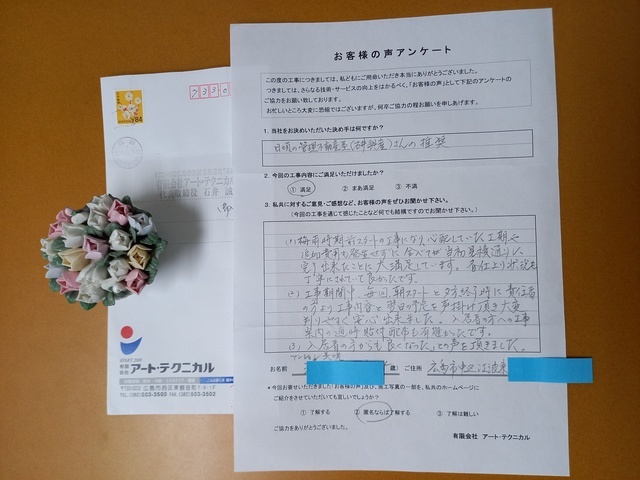 お客様の声アンケート
この度の工事につきましては、私どもにご用命いただき本当にありがとうございました。
つきましては、さらなる技術・サービスの向上をはかるべく、「お客様の声」として下記のアンケートの
ご協力をお願い致しております。
お忙しいところ大変に恐縮ではございますが、何卒ご協力の程お願い申しあげます。
1. 当社をお決めいただいた決め手は何ですか?
日頃の管理不動産屋さんの推奨
2. 今回の工事内容にご満足いただけましたか?
① 満足 ② まあ満足 ③ 不満
3. 私共に対するご意見・ご感想など、お客様の声をぜひお聞かせ下さい。
(今回の工事を通じて感じたことなど何でも結構ですのでお聞かせ下さい。)
(1) 梅雨時期前スタートの工事になり心配していた工期や
追加費用も発生せずに全てが当初見積通りに
完了出来たことに大満足しています。
丁寧にされていて良かったです。
(2) 工事期間中、毎回、朝スタートと夕方終了時に責任者
の方より工事内容と翌日の予定を声掛け頂き大変
判りやすく安心出来ました。入居者の方への工事
案内の適時貼付配布も有難かったです。
(3) 入居者の方からも良くなったとの声を頂きました。
お名前 歳) ご住所 広島市中区
*今回お寄せいただきました「お客様の声」及び、施工写真の一部を、私共のホームページに
ご紹介をさせていただいても宜しいでしょうか?
① 了解する ② 匿名ならば了解する ③ 了解は難しい
ご協力をありがとうございました。
有限会社 アート・テクニカル
7330
84
アート・テクニカル
有限会社
アート・テクニカル
広島市西区東観音町
TEL.(082)503-3500 FAX.(082)503-3502